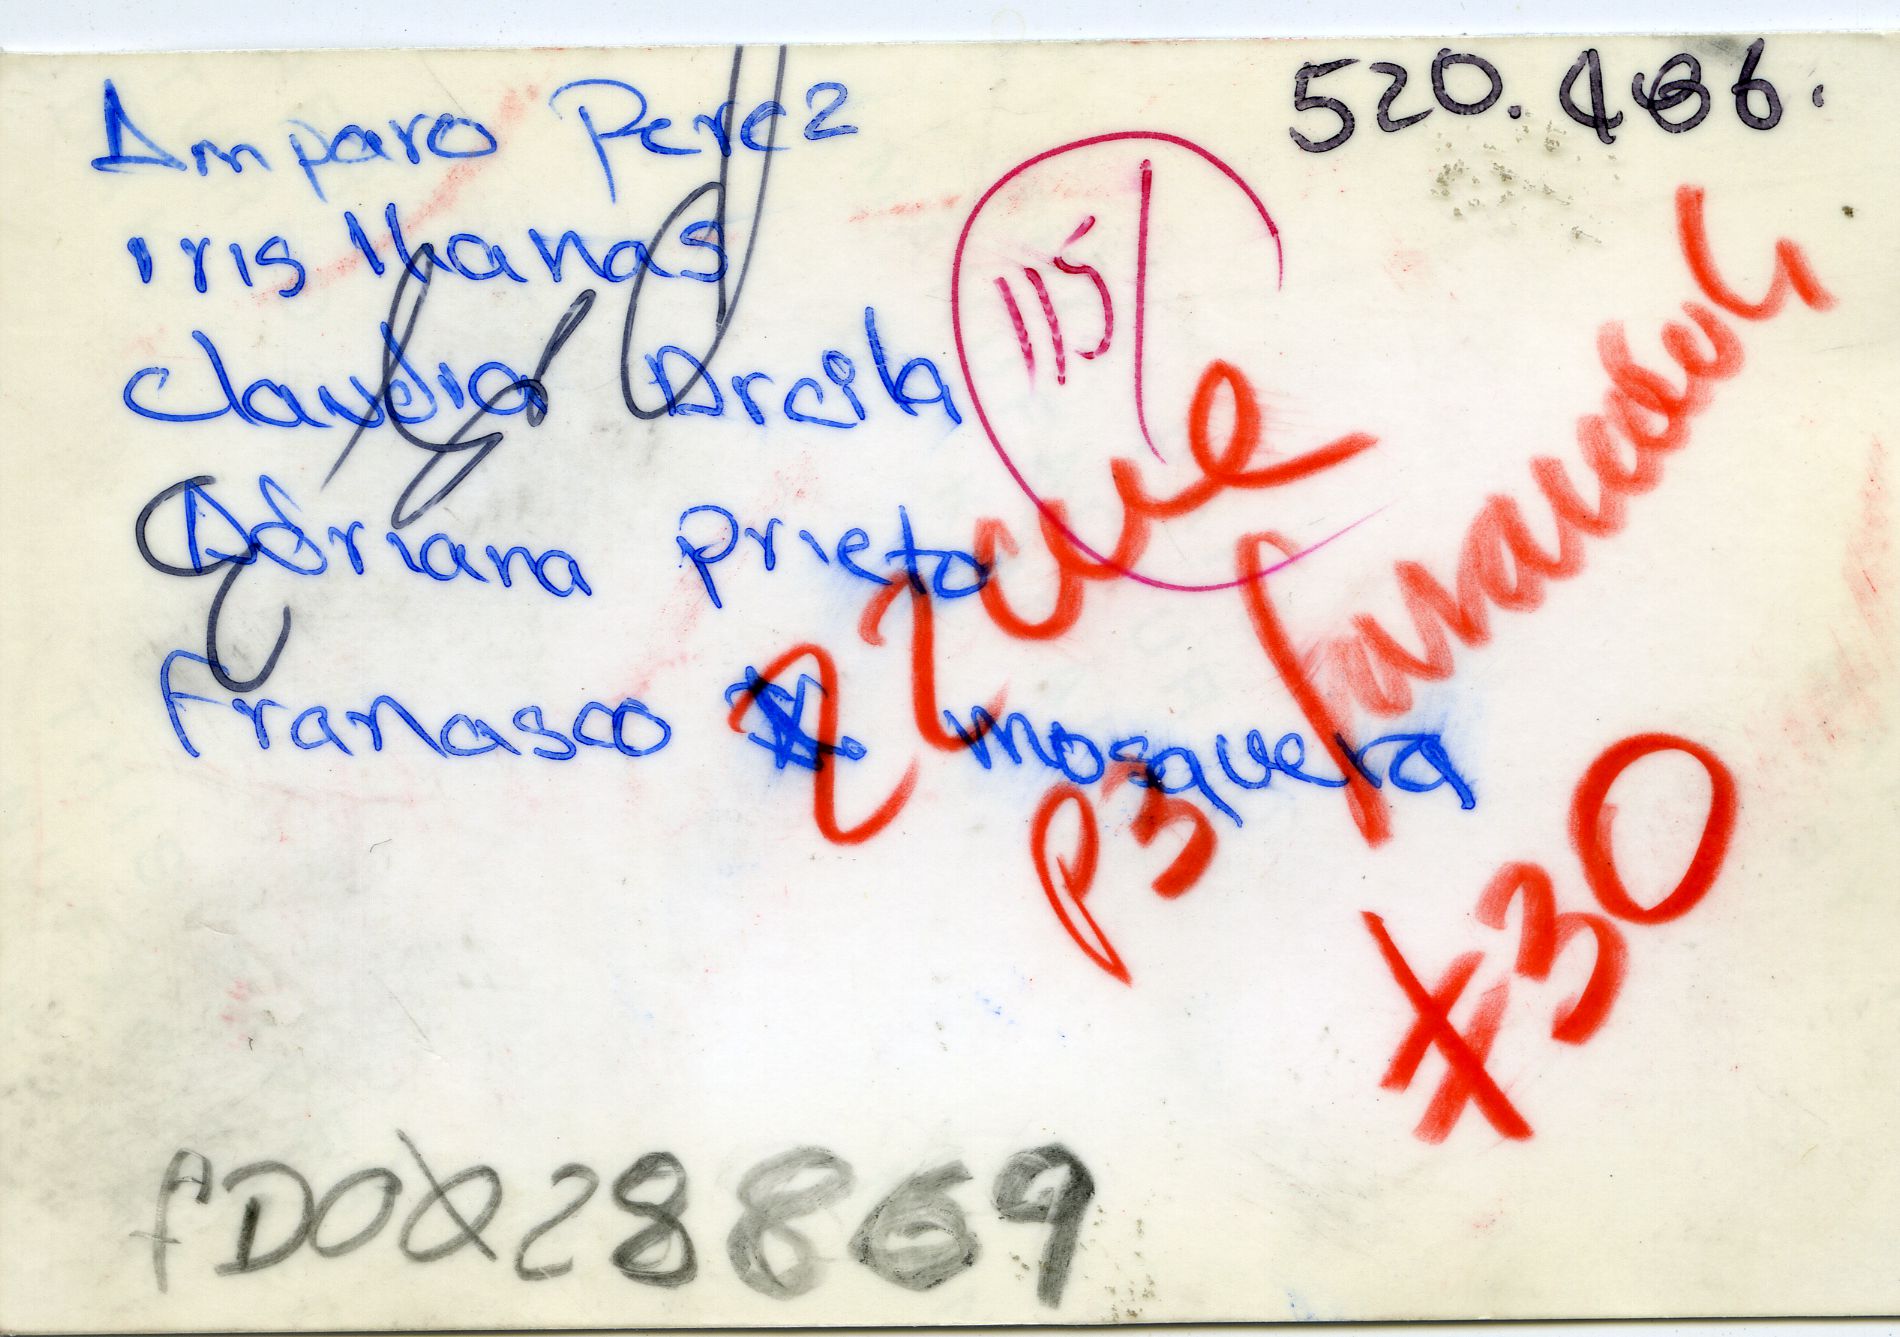 520.486.
Amparo Perez
Iris Llanas
115/
Claudia Arcila
Adriana Prieto
Francisco Mosquera
P3
x30
FD0228869